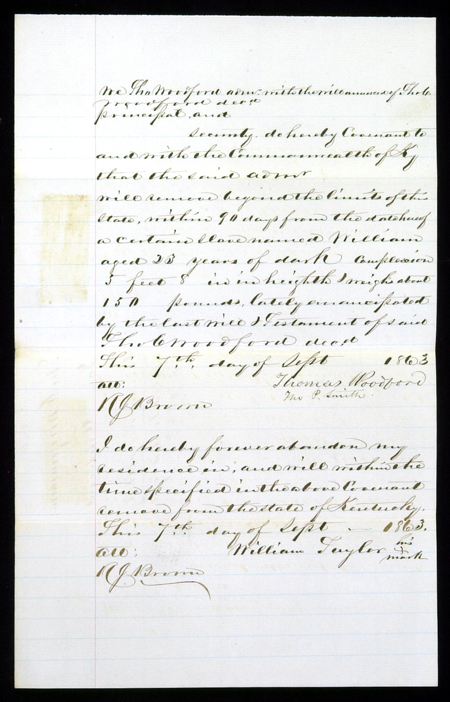 We Tho Woodford admr with the will annexed of Tho C
Woodford decd
principal, and
security do hereby Covenant to
and with the Commonwealth of Ky
that the said admr
will remove beyond the limits of this
State, within 90 days from the date hereof
a certain slave named William
aged 23 years of dark Complexion
5 feet 8 in in heighth & weighs about
150 pounds, lately emancipated
by the last will & Testament of said
Tho C Woodford decd
This 7th, day of Sept 1863
att: Thomas Woodford
Tho P. Smith
R J Brown
I do hereby forever abandon my
residence in, and will within the
time specified in the above Covenant
remove from the state of Kentucky.
This 7th day of Sept - 1863.
att: William Taylor his
x
mark
R J Brown